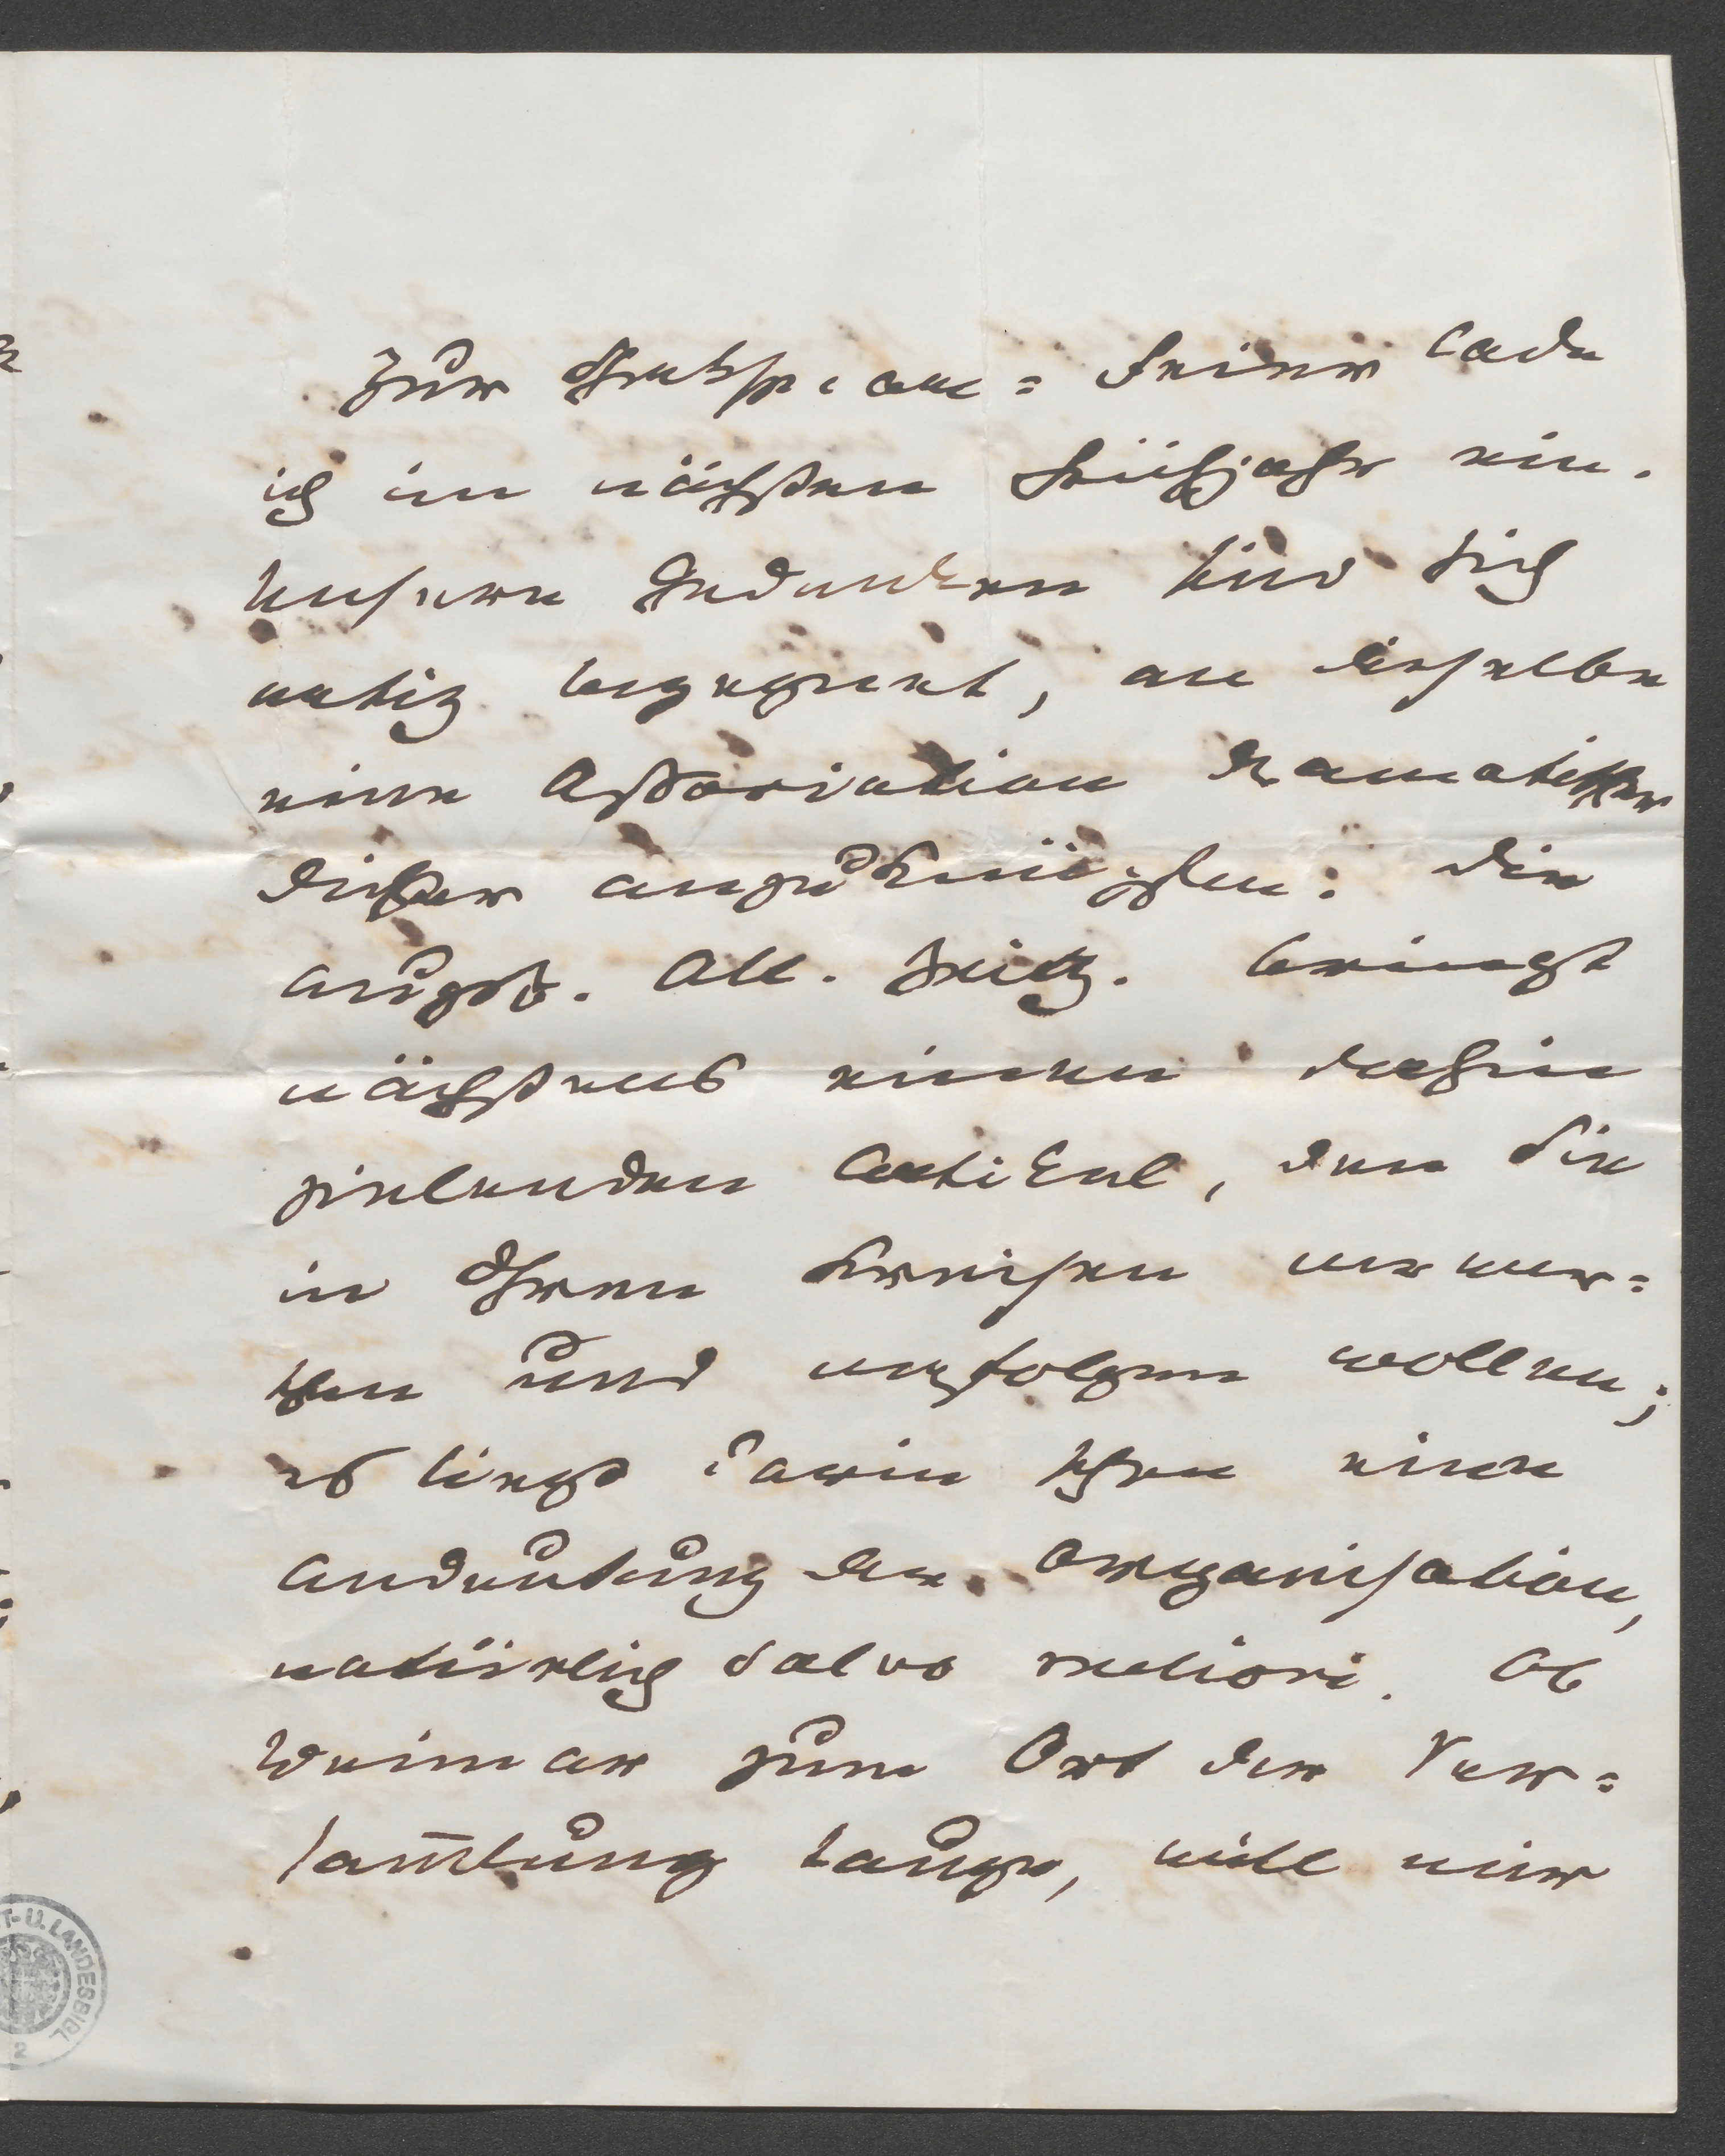 Zur Shakspeare=Feier lade
ich im nächsten Frühjahr ein.
Unsere Gedanken sind sich
artig begegnet, an dieselbe
eine Association dramatischer
Dichter anzuknüpfen: die
Augsb. All. Zeitg. bringt
nächstens einen dahin
zielenden Artikel, den Sie
in Ihren Kreisen verwer=
then und verfolgen wollen;
es liegt darin schon eine
Andeutung der Organisation,
natürlich salvo meliori. Ob
Weimar zum Ort der Ver=
sam̅lung tauge, will mir
T- U. LANDESBIBL
2